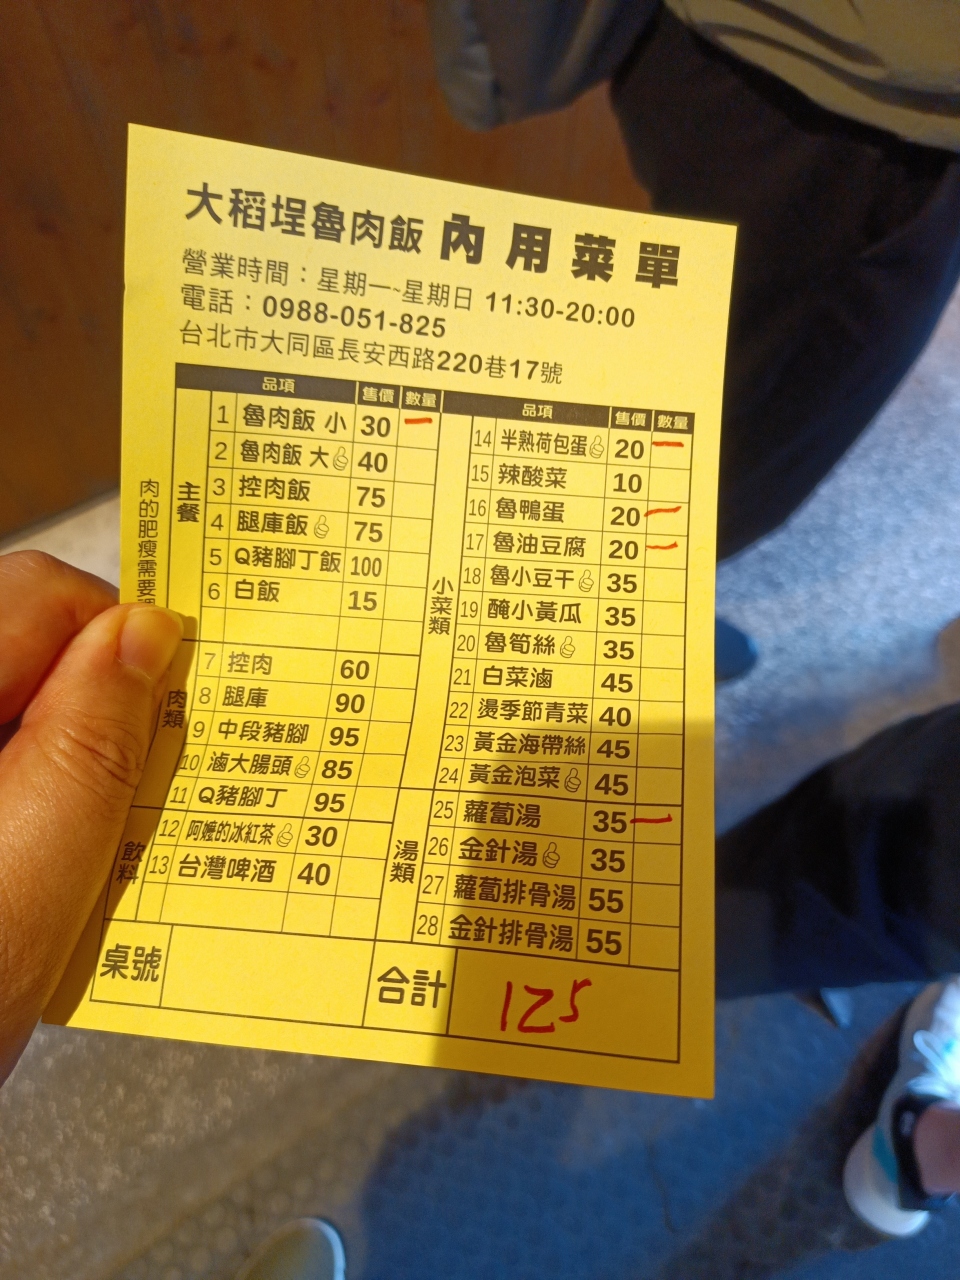 大稻埕魯肉飯 內用菜單
營業時間：星期一~星期日 11:30-20:00
電話：0988-051-825
台北市大同區長安西路220巷17號
肉的肥瘦需要
品項 售價 數量
主餐
1 魯肉飯 小 30 一
2 魯肉飯 大 40
3 控肉飯 75
4 腿庫飯 75
5 Q豬腳丁飯 100
6 白飯 15
肉類
7 控肉 60
8 腿庫 90
9 中段豬腳 95
10 滷大腸頭 85
11 Q豬腳丁 95
飲料
12 阿嬤的冰紅茶 30
13 台灣啤酒 40
品項 售價 數量
小菜類
14 半熟荷包蛋 20 一
15 辣酸菜 10
16 魯鴨蛋 20 一
17 魯油豆腐 20 一
18 魯小豆干 35
19 醃小黃瓜 35
20 魯筍絲 35
21 白菜滷 45
22 燙季節青菜 40
23 黃金海帶絲 45
24 黃金泡菜 45
湯類
25 蘿蔔湯 35 一
26 金針湯 35
27 蘿蔔排骨湯 55
28 金針排骨湯 55
桌號
合計 125